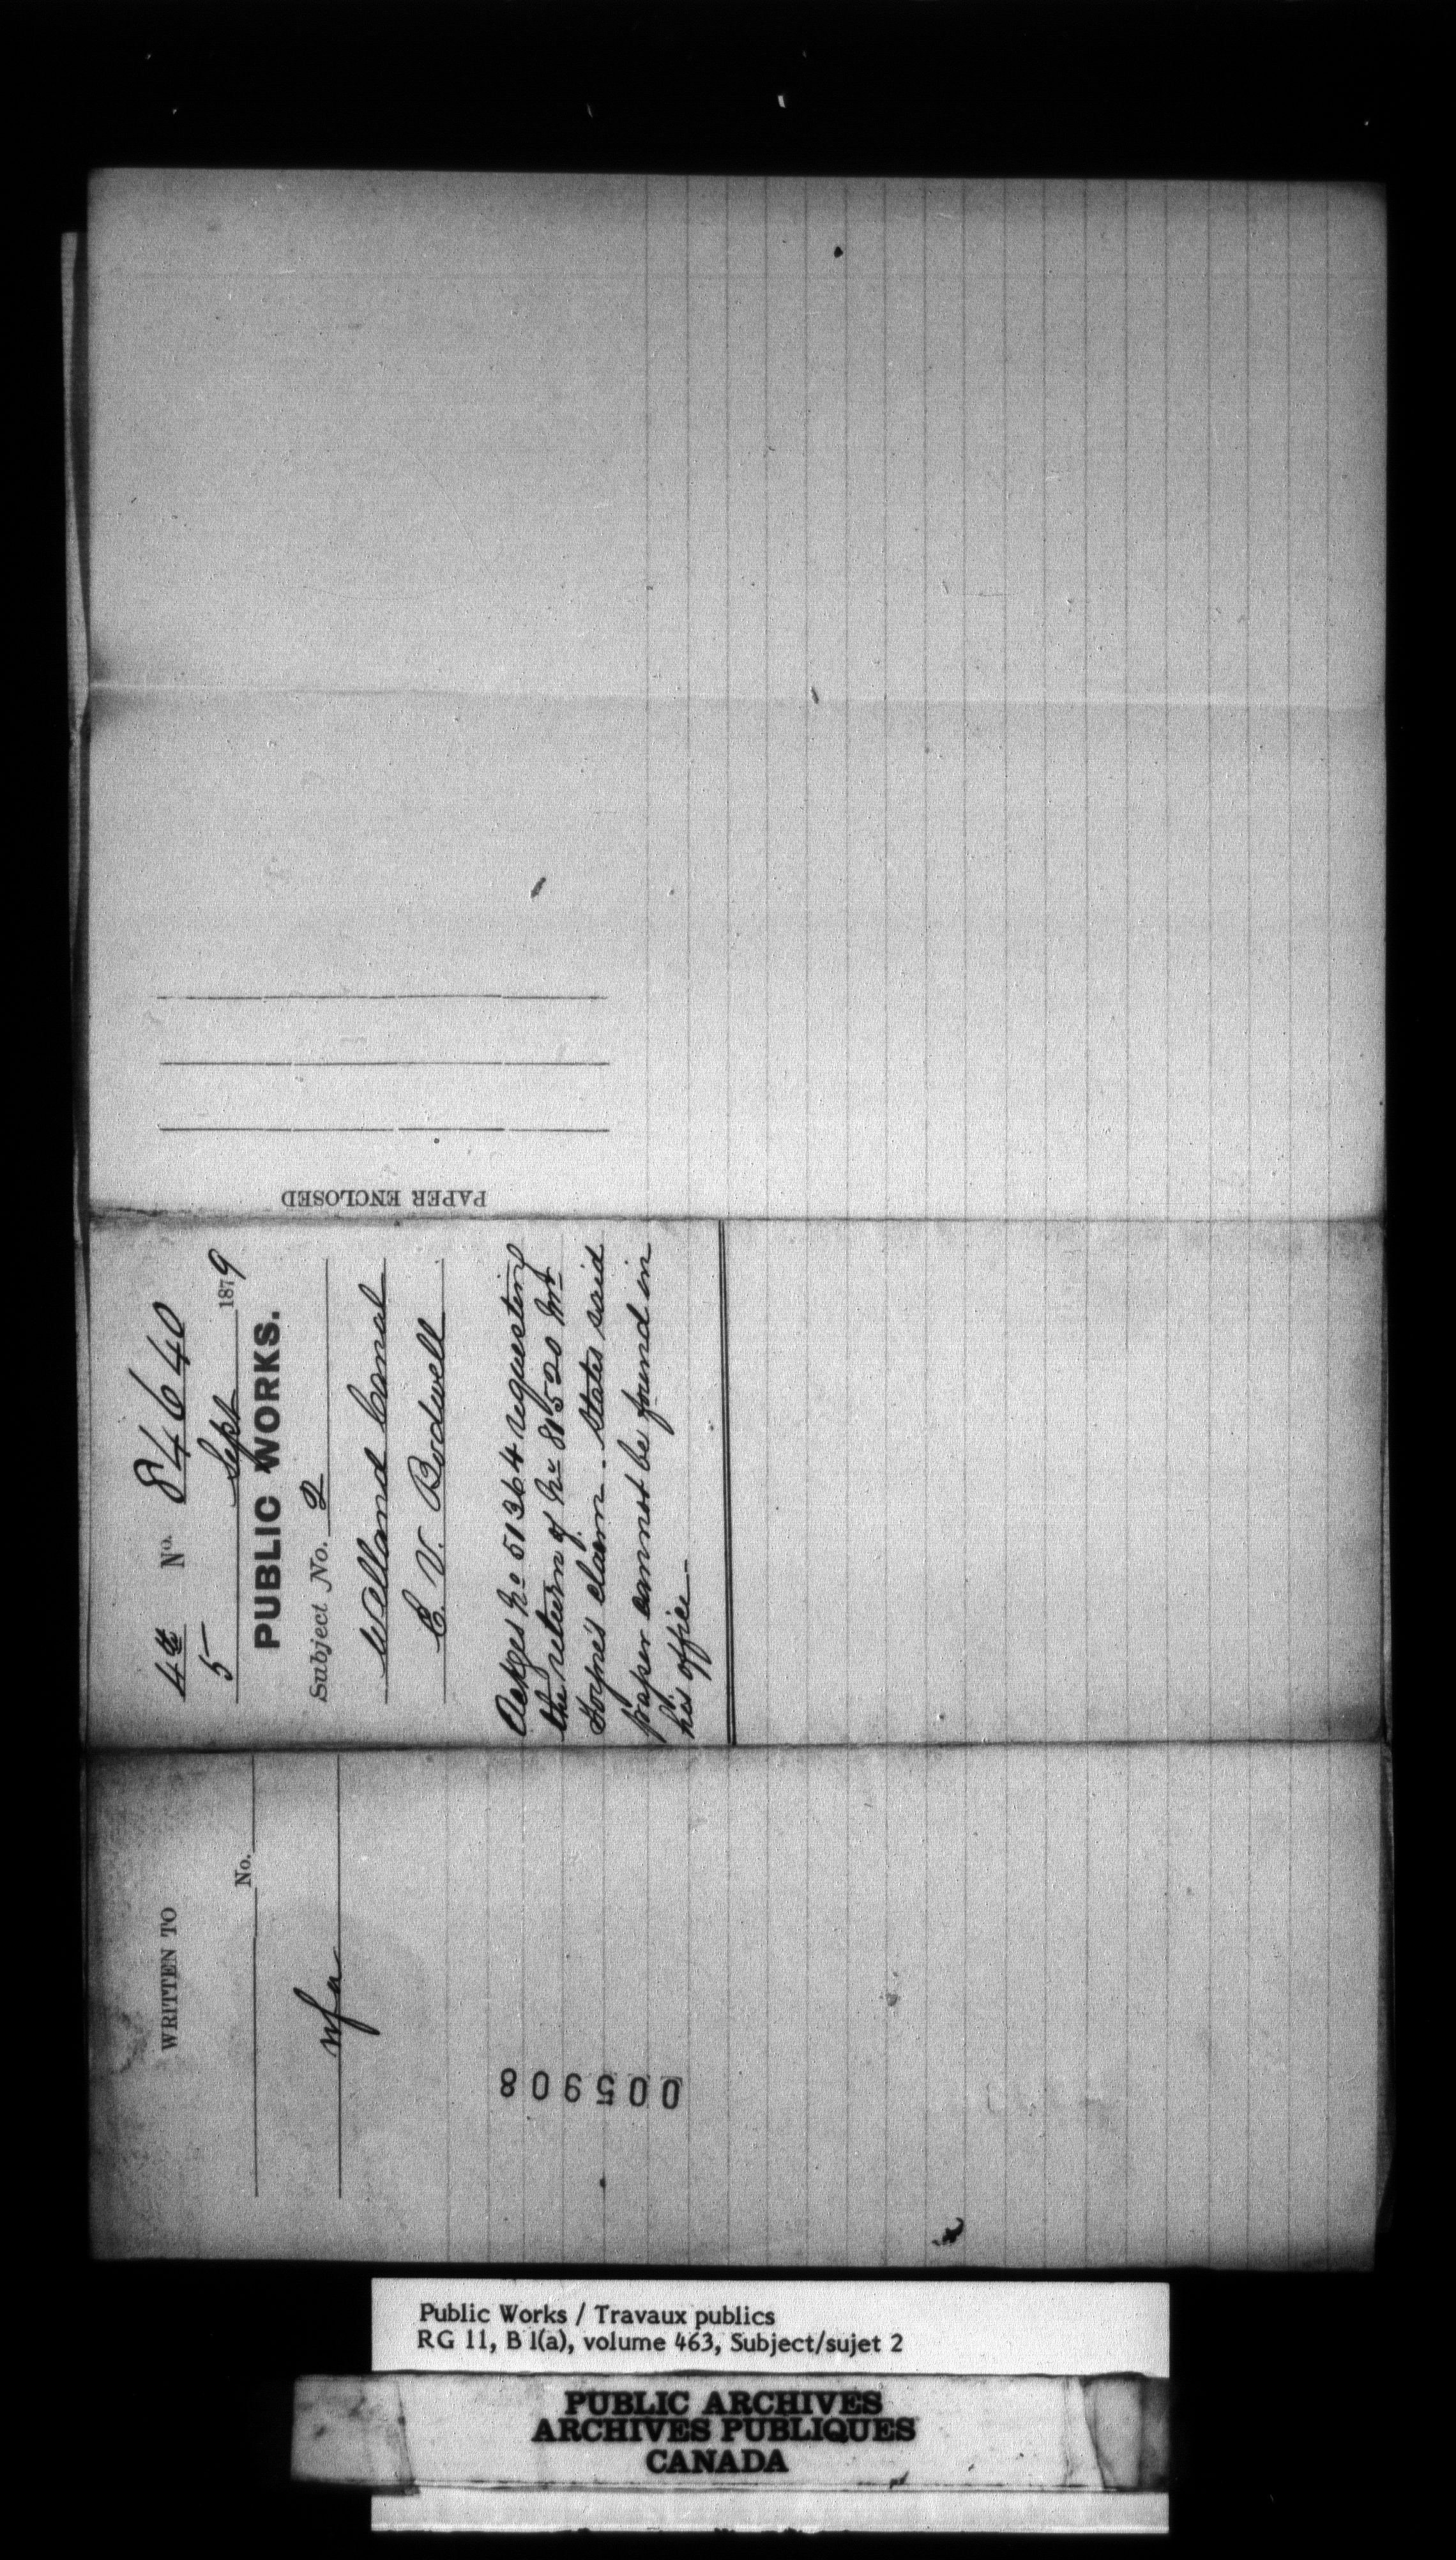 PAPER ENCLOSED
4th No. 84640
5 Sept 1879
PUBLIC WORKS.
Subject No. 2
Welland Canal
E. V. Bodwell
Ackges No 51364 requesting
the return of No 81520 Mr
claim. States said
paper cannot be found in
his office
WRITTEN TO
No.
nfa
005908
Public Works / Travaux publics
RG 11, B 1(a), volume 463, Subject/sujet 2
PUBLIC ARCHIVES
ARCHIVES PUBLIQUES
CANADA